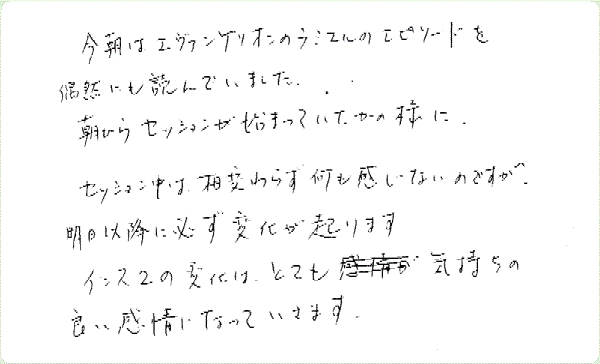 今朝はエヴァンゲリオンのラミエルのエピソードを
偶然にも読んでいました．．．
朝からセッションが始まっていたかの様に．
セッション中は、相変わらず何も感じないのですが、
明日以降に必ず変化が起ります
の変化は、とても 感情が 気持ちの
良い感情になっていきます．